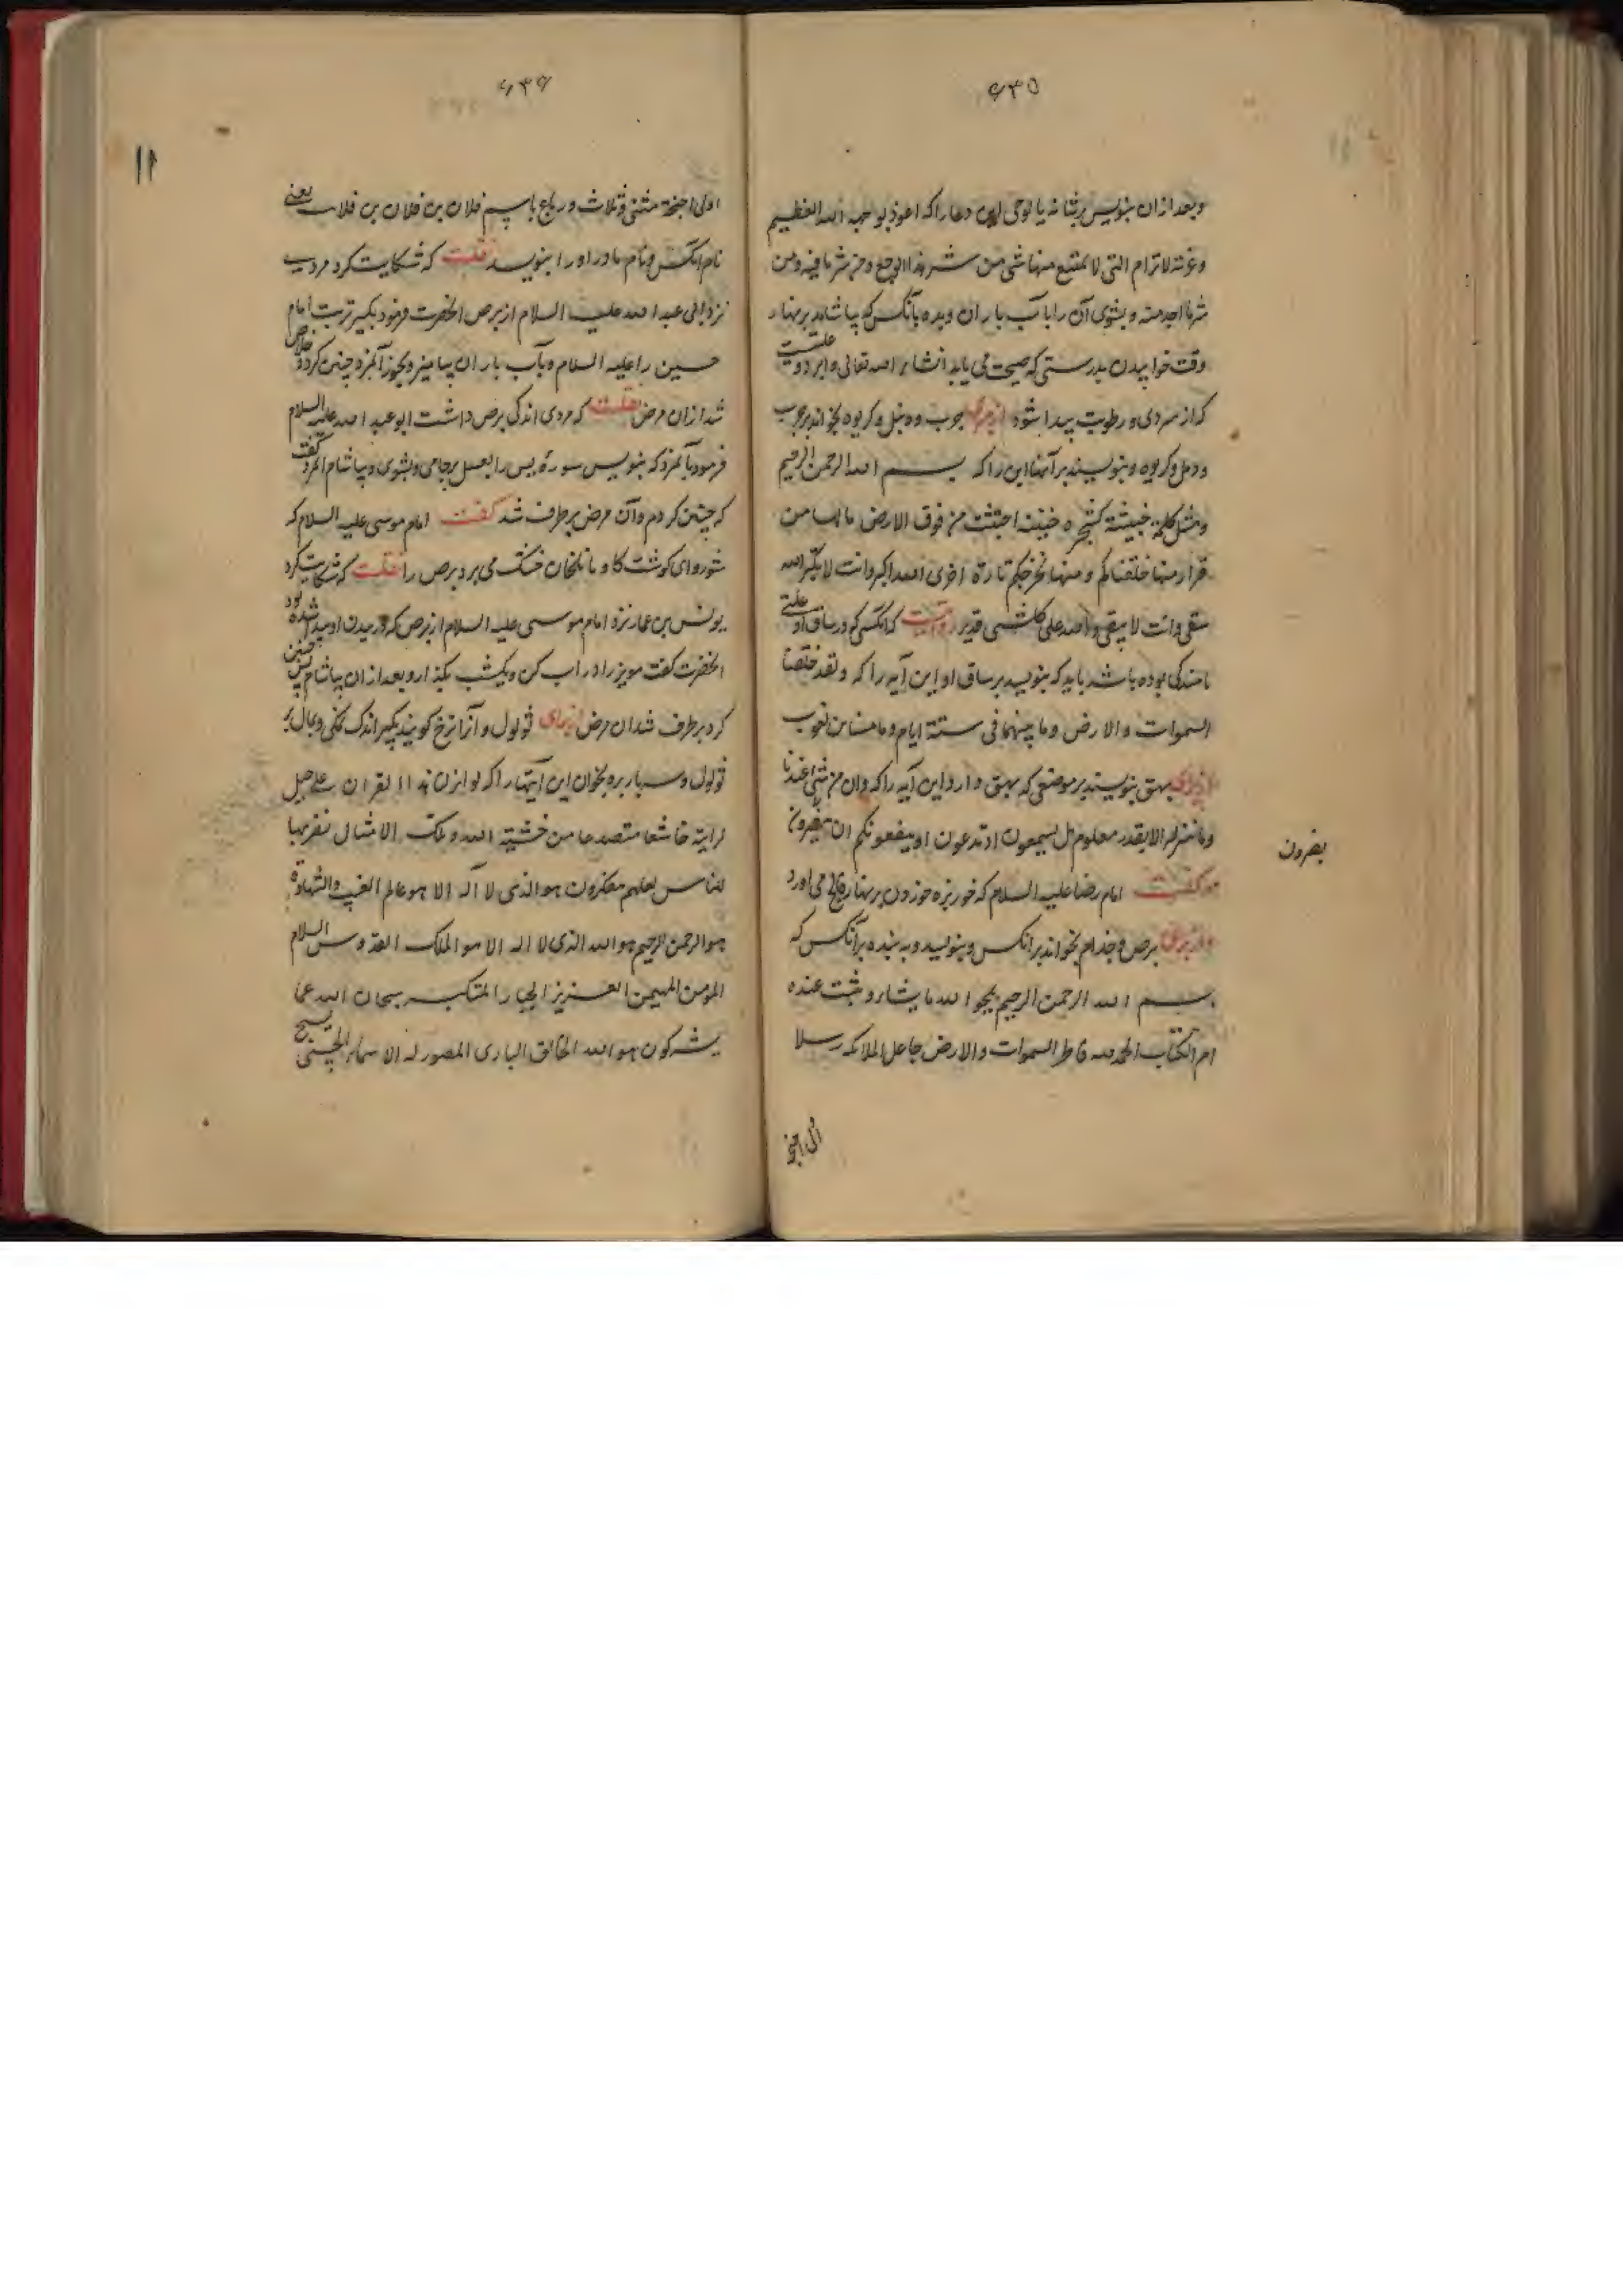 ۶۳۵
وبعد ازان بنویس بر شانه یا لوحی این دعا را که اعوذ بوجه الله العظیم
وعزته لاترام التی لا یمتنع منها شی من شر هذا الوجع و من شر ما فیه ومن
شر ما اجد منه و بشوی آن را باب باران وبده بآنکس که بیاشامد بر نهار
وقت خوابیدن بدرستی که صحت می یابد انشاء الله تعالی واین دو علتست
که از سردی ورطوبت پیدا شود از برای جوب و دنبل و کریوه بخواند بر جوب
ودمل وکریوه وبنویسند بر آنها این را که بسم الله الرحمن الرحیم
ومثل کلمة خبیثة کشجرة خبیثه اجتثت من فوق الارض مالها من
قرار منها خلقناکم ومنها نخرجکم تارة اخری الله اکبر وانت لا یکبر الله
یبقی وانت لا یبقی والله علی کل شی قدیر روایتست که آنکسی که در ساق او علتی
یا مندکی بوده باشد باید که بنویسد بر ساق او این آیه را که ولقد خلقنا
السموات والارض وما بینهما فی ستة ایام وما مسنا من لغوب
از برای بهق بنویسند بر موضعی که بهق دارد این آیه را که وان من شئ الا عندنا
وما ننزله الا بقدر معلوم هل یسمعون اذ تدعون او ینفعونکم ان یضرون
یضرون
وکفت امام رضا علیه السلام که خربزه خوردن بر نهار فالج می آورد
واز برای برص وجذام بخواند بر انکس وبنویسد وبه بندد بر آنکس که
بسم الله الرحمن الرحیم یمحوا الله ما یشاء ویثبت عنده
ام الکتاب الحمد لله فاطر السموات والارض جاعل الملائکه رسلا
اولی اجنحة
۶۳۶
۱۱
اولی اجنحة مثنی وثلاث ورباع باسم فلان بن فلان بن فلان یعنی
نام آنکس ونام مادر اورا بنویسد نقلست که شکایت کرد مردی
نزد ابی عبد الله علیه السلام از برص انحضرت فرمود بکیر تربت امام
حسین را علیه السلام وبآب باران بیامیز وبخور آنمرد چنین کرد وخلاص
شد ازان مرض نقلست که مردی اندکی برص داشت ابو عبد الله علیه السلام
فرمود بآنمرد که بنویس سورهٔ یس را بعسل بر جامی وبشوی وبیاشام آنمرد کفت
که چنین کردم وآن مرض برطرف شد کفت امام موسی علیه السلام که
شوروای کوشت کاو با تلخان خشک می برد برص را نقلست که شکایت کرد
یونس بن عمار نزد امام موسی علیه السلام از برص که در بدن او پیدا شده بود
انحضرت کفت مویز را در اب کن ویکشب بکذار وبعد ازان بیاشام پس چنین
کرد برطرف شد ان مرض از برای ثولول وآنرا زخ کویند بکیر اندک نمکی وبمال بر
ثولول وسه بار بره بخوان این آیتها را که لو انزلنا هذا القران علی جبل
لرایته خاشعا متصدعا من خشیة الله وتلک الامثال نضربها
للناس لعلهم یتفکرون هو الذی لا اله الا هو عالم الغیب والشهادة
هو الرحمن الرحیم هو الله الذی لا اله الا هو الملک القدوس السلام
المومن المهیمن العزیز الجبار المتکبر سبحان الله عما
یشرکون هو الله الخالق الباری المصور له الاسماء الحسنی یسبح